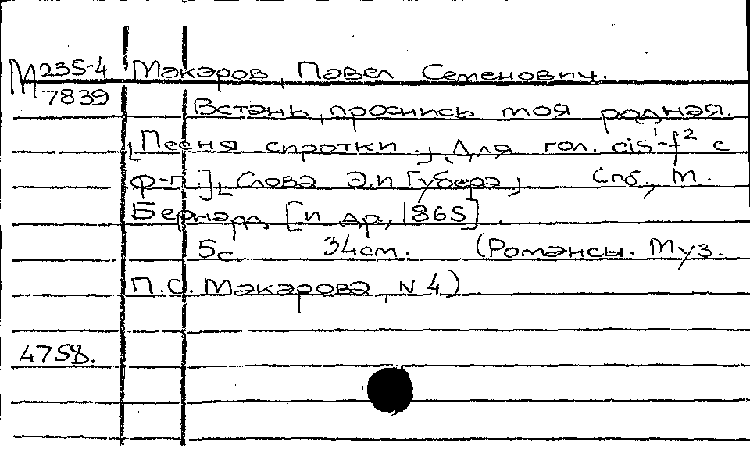 М 235-4 Макаров, Павел Семенович.
7839
Встань, проснись моя родная.
[Песня сиротки.] Для гол. cis¹-f² с
ф-п.] [Слова Э.И Губера] Спб, М.
Бернард, [и др, 1865].
5с 34см. (Романсы. Муз.
П.С. Макарова, N 4)
4758.